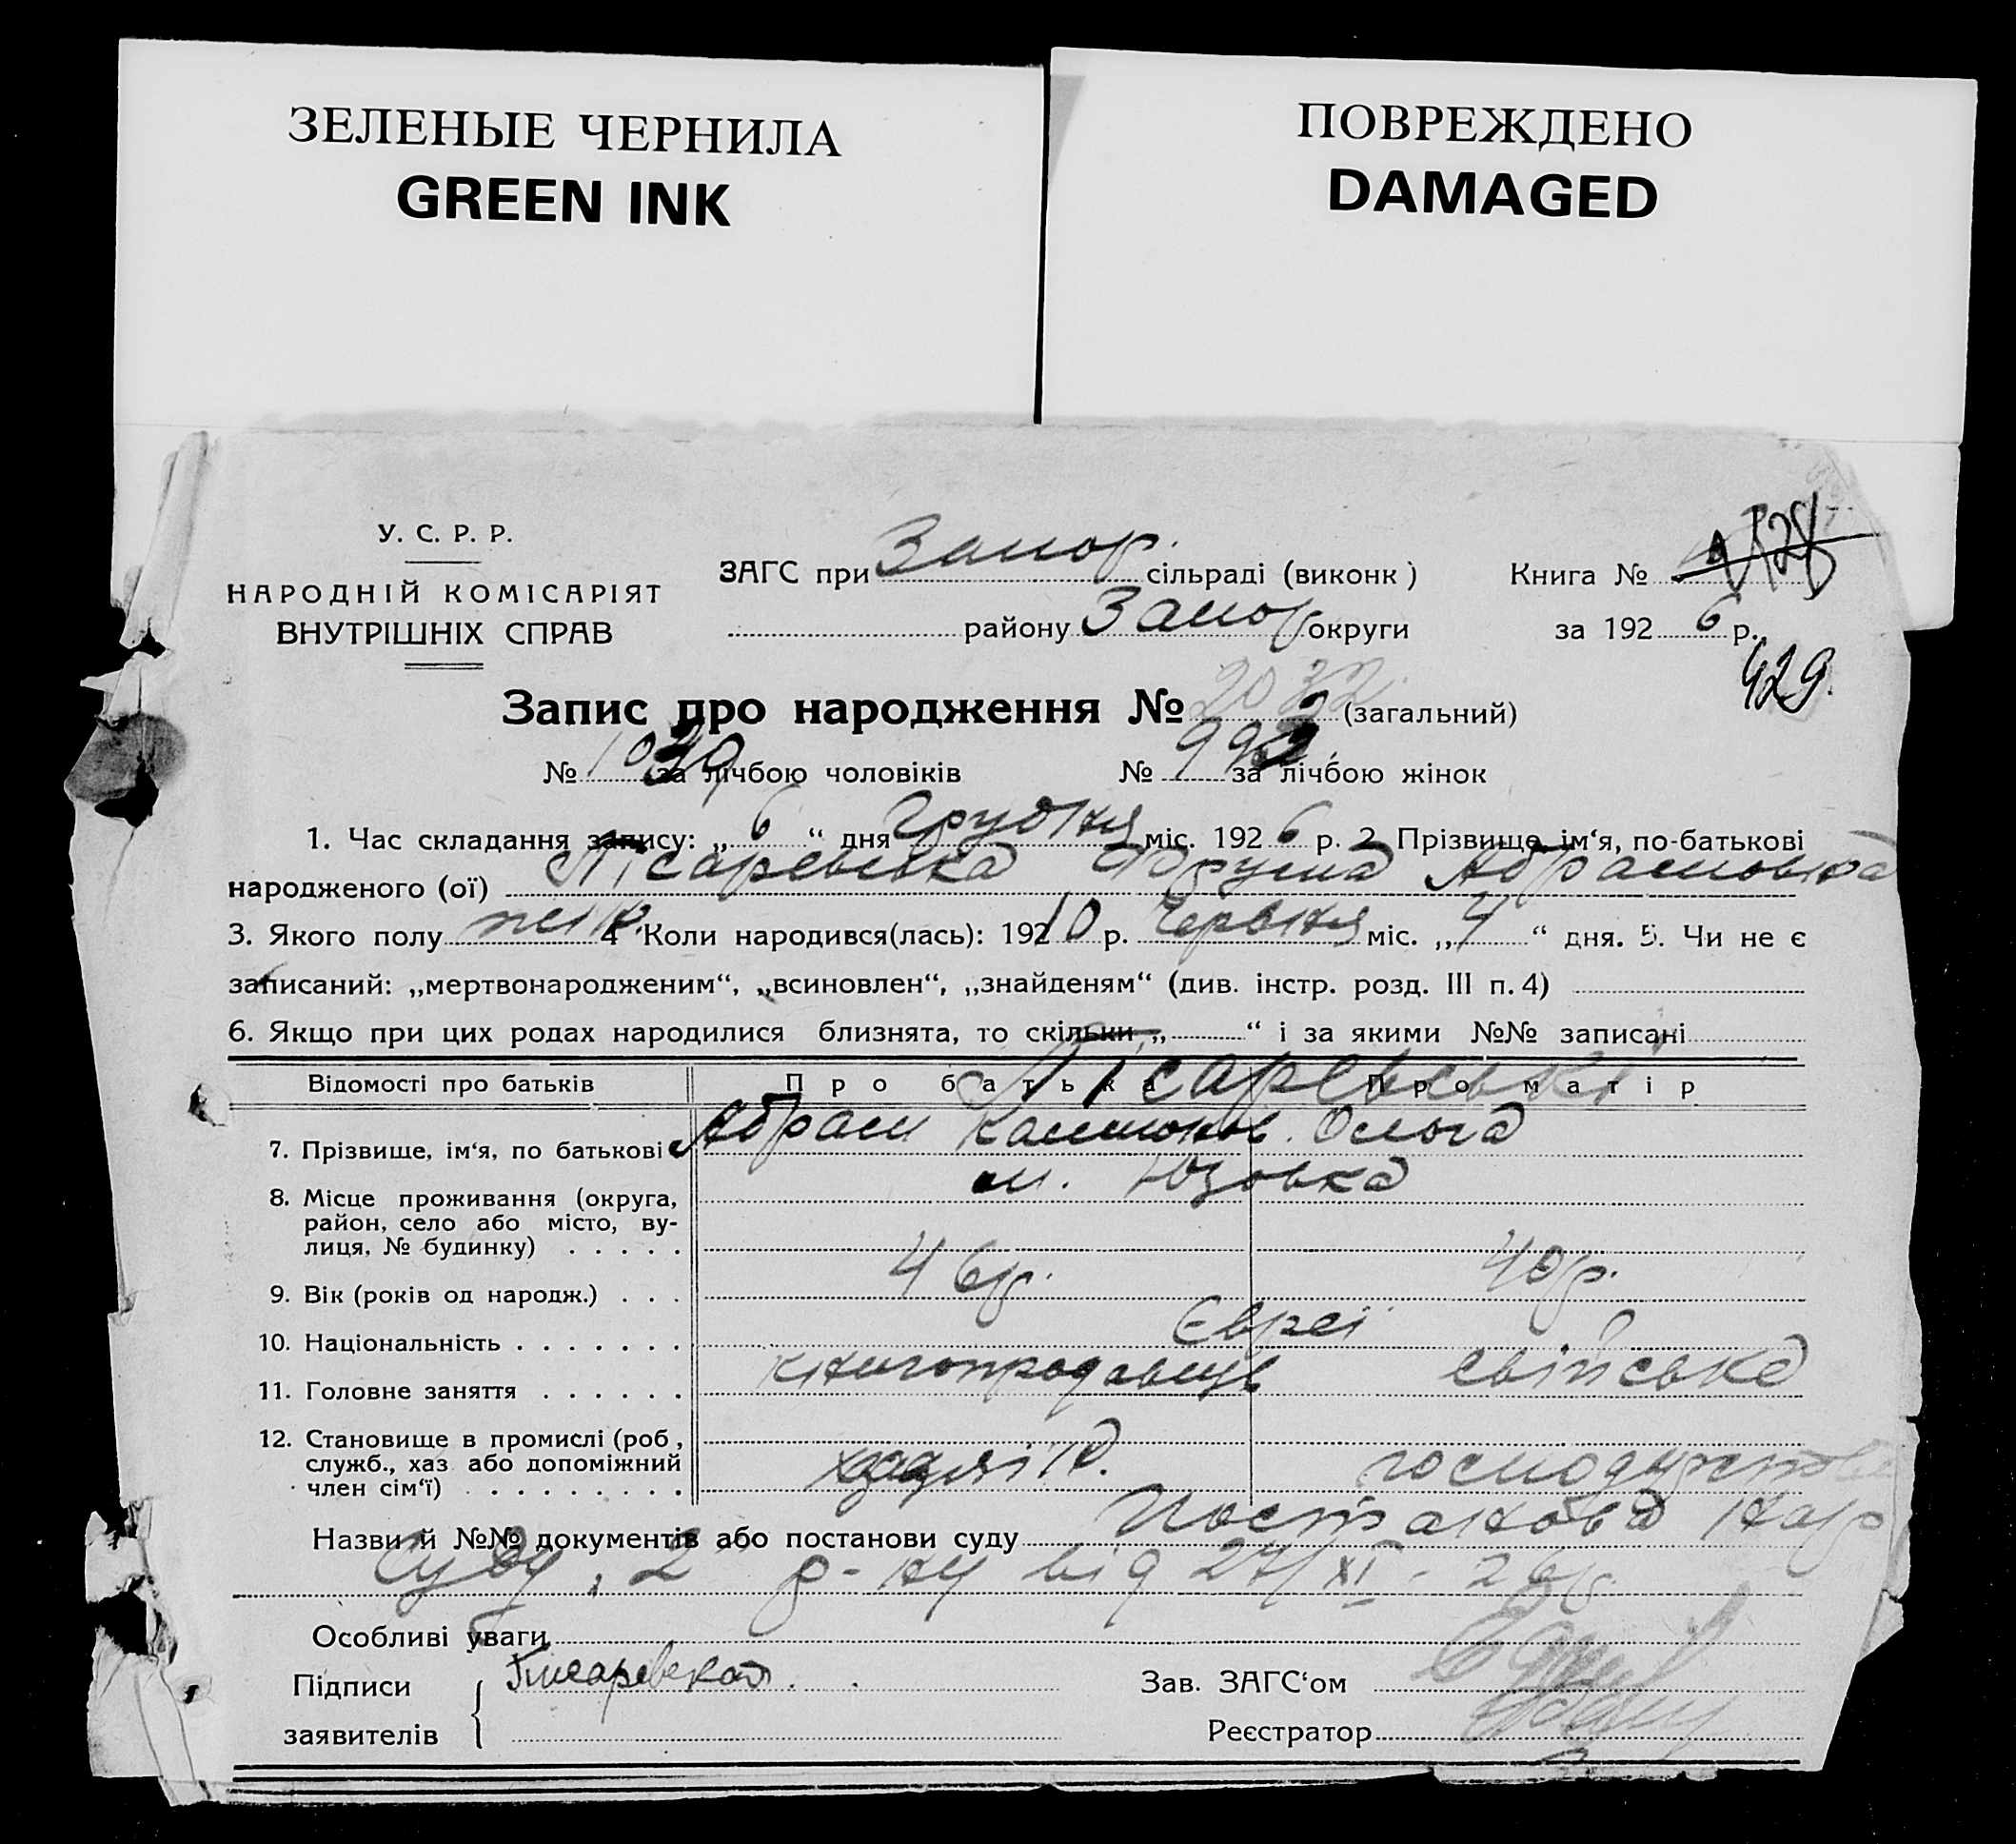 ЗЕЛЕНЫЕ ЧЕРНИЛА
GREEN INK
ПОВРЕЖДЕНО
DAMAGED
У. С. Р. Р.
НАРОДНІЙ КОМІСАРІЯТ
ВНУТРІШНІХ СПРАВ
ЗАГС при Запор. сільраді (виконк)
району Запор округи
Книга №
за 192 6 р.
429.
Запис про народження № 2032 (загальний)
№ за лічбою чоловіків № 992 за лічбою жінок
1. Час складання запису: „ 6 “ дня Грудня міс. 192 6 р. 2. Прізвище, ім‘я, по-батькові
народженого (ої) Пісаревська Фрума Абрамовна
3. Якого полу жін. 4 Коли народився(лась): 1910 р. Червня міс. „ 4 “ дня. 5. Чи не є
записаний: „мертвонародженим“, „всиновлен“, „знайденям“ (див. інстр. розд. III п. 4)
6. Якщо при цих родах народилися близнята, то скільки „ “ і за якими №№ записані
Відомості про батьків Про батька Про матір
Пісаревські
7. Прізвище, ім‘я, по батькові Абрам Ольга
8. Місце проживання (округа, район, село або місто, вулиця, № будинку) м. Юзовка
9. Вік (років од народж.) 46 р. 40 р.
10. Національність Євреї
11. Головне заняття книгопродавець свійське
12. Становище в промислі (роб, служб., хаз або допоміжний член сім‘ї) господарство
Назви й №№ документів або постанови суду Постанова нар
суду, 2 р-ну від 27/XI - 26 р.
Особливі уваги
Підписи
заявителів
Писаревская.
Зав. ЗАГС‘ом
Реєстратор